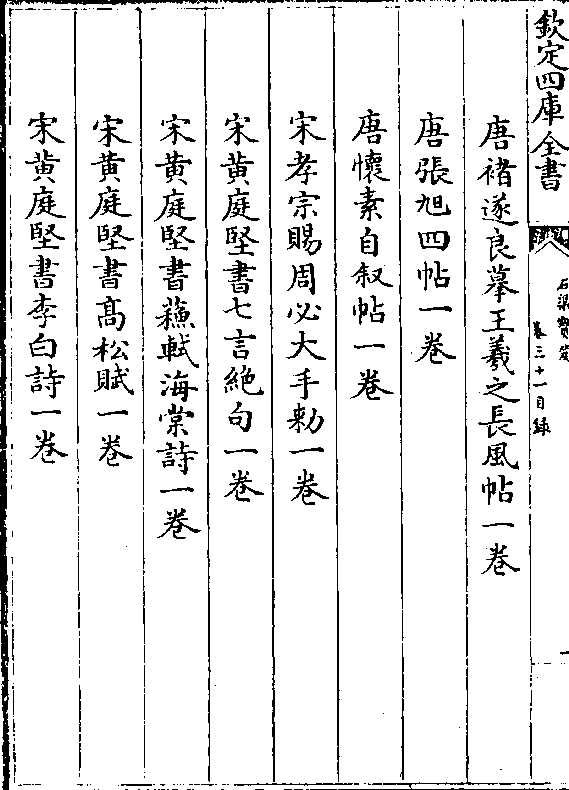 欽定四庫全書
石渠寶笈
卷三十一目録
一
唐褚遂良摹王羲之長風帖一卷
唐張旭四帖一卷
唐懷素自叙帖一卷
宋孝宗賜周必大手勅一卷
宋黄庭堅書七言絶句一卷
宋黄庭堅書蘇軾海棠詩一卷
宋黄庭堅書髙松賦一卷
宋黄庭堅書李白詩一卷